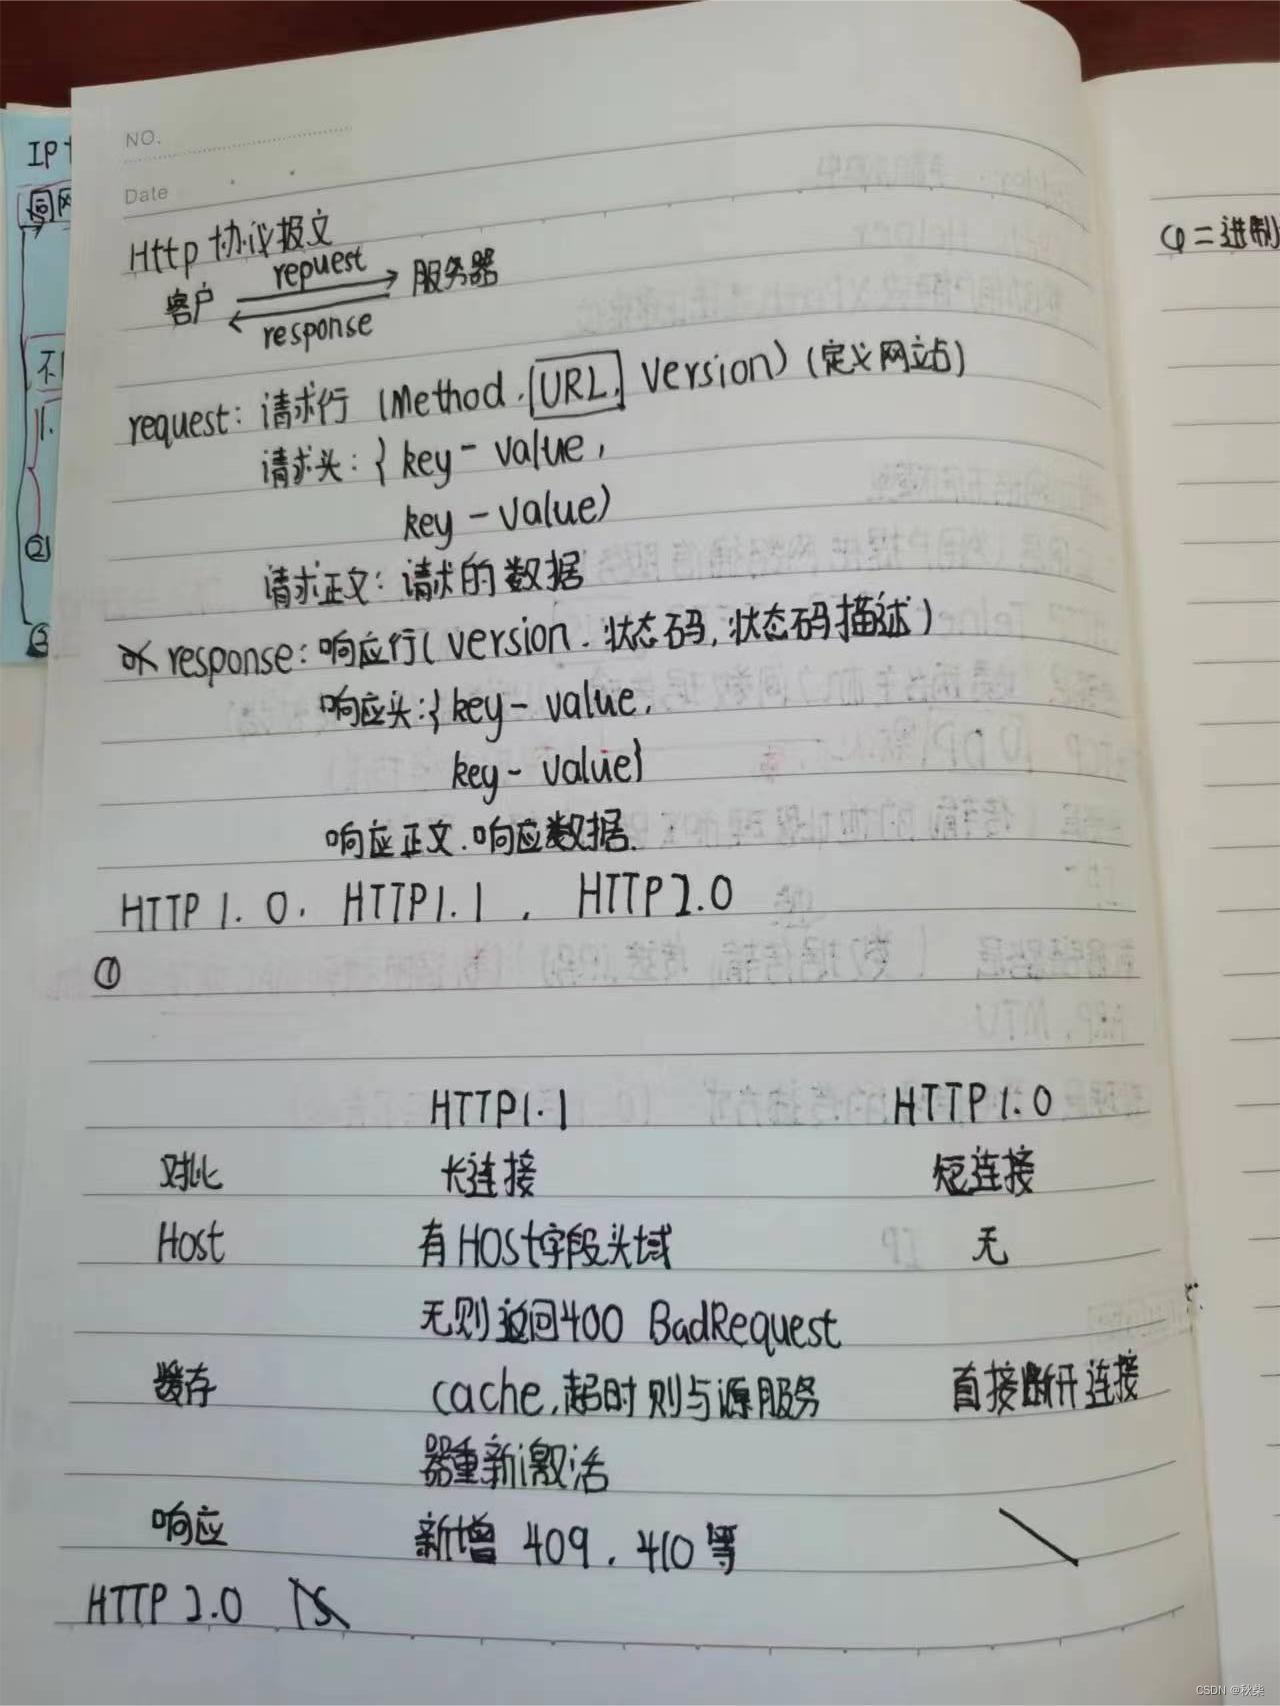 NO.
Date
Http 协议报文
repuest
客户 服务器
response
request: 请求行 (Method. URL. Version) (定义网站)
请求头: { key - value,
key - value)
请求正文: 请求的数据
response: 响应行( version. 状态码, 状态码描述)
响应头: { key - value.
key - value}
响应正文. 响应数据.
HTTP 1.0. HTTP1.1 , HTTP2.0
①
HTTP1.1 HTTP1.0
对比 长连接 短连接
Host 有HOSt字段头域 无
无则返回400 BadRequest
缓存 cache,超时则与源服务 直接断开连接
器重新激活
响应 新增 409. 410等 \
HTTP 2.0
IP
同网
1.
②
③
φ=进制
CSDN @秋柴